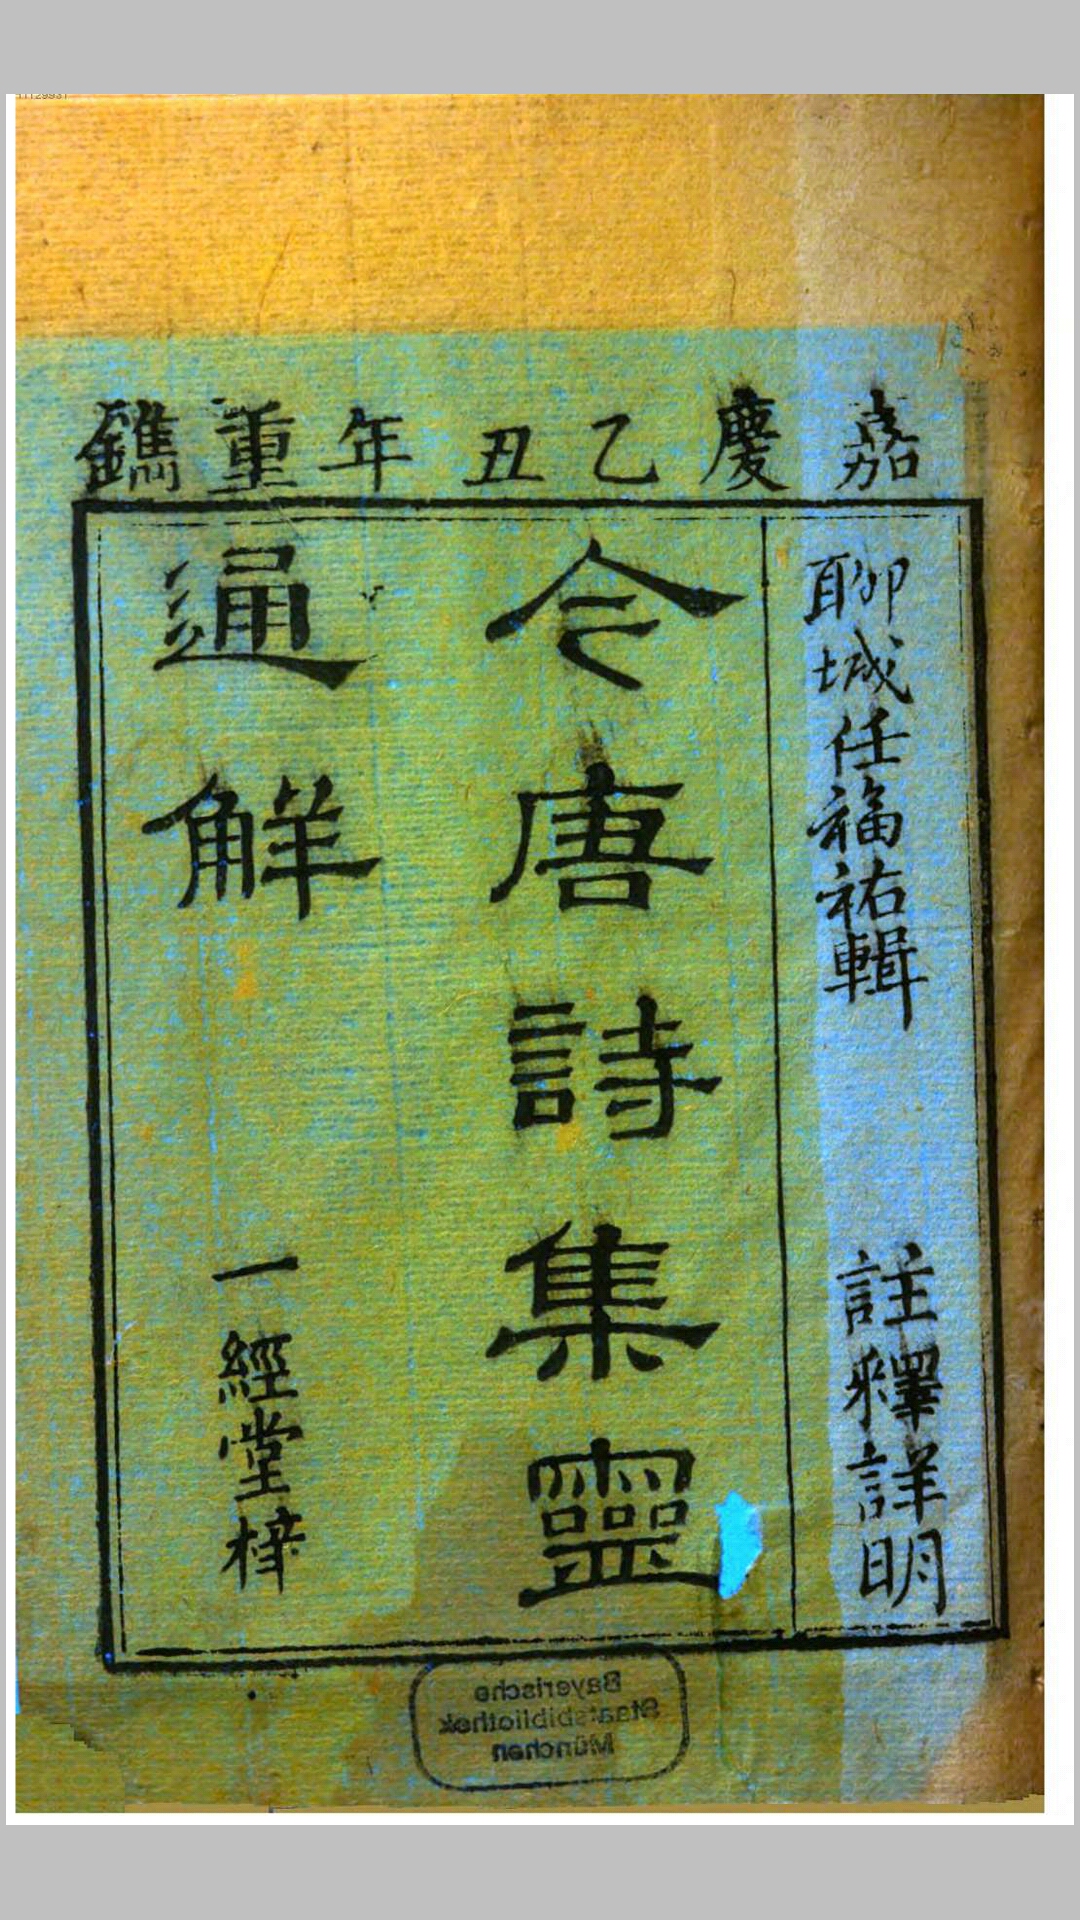 嘉慶乙丑年重鐫
聊城任福祐輯 註釋詳明
今唐詩集靈
通解
一經堂梓
Bayerische
Staatsbibliothek
München